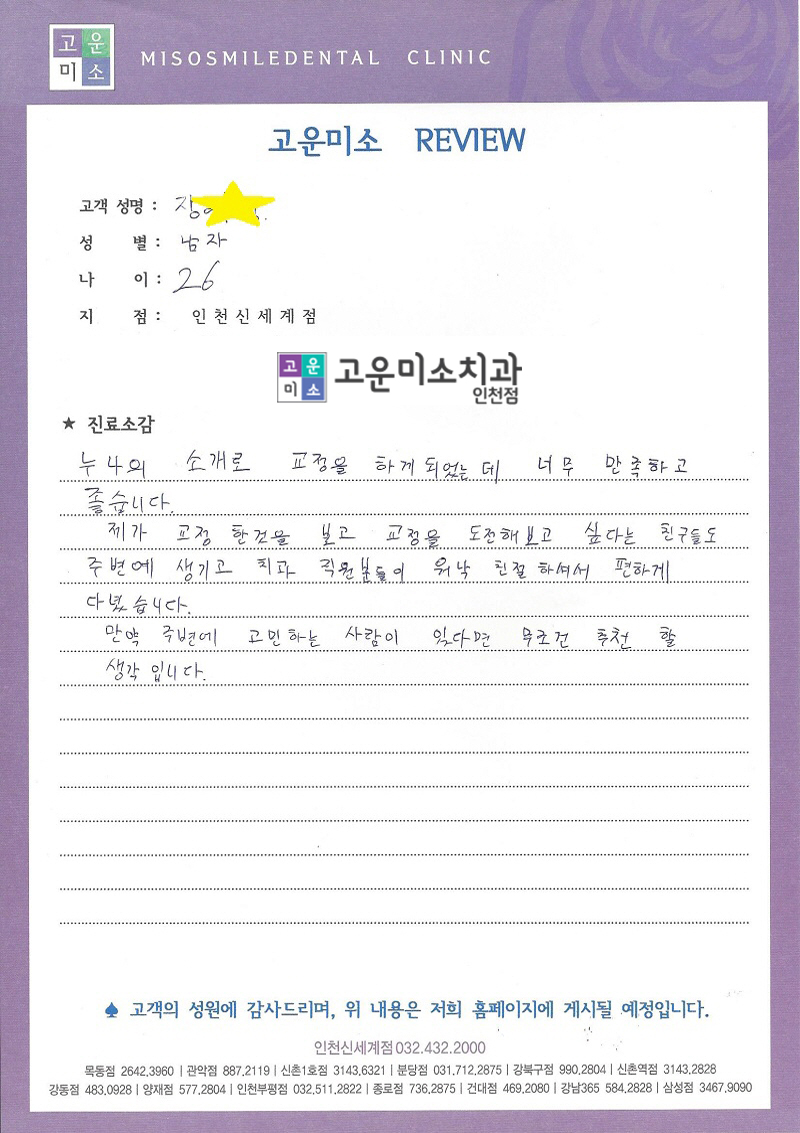 고운
미소
MISOSMILEDENTAL CLINIC
고운미소 REVIEW
고객 성명 :
성 별 : 남자
나 이 : 26
지 점 : 인천신세계점
고운
미소
고운미소치과
인천점
★ 진료소감
누나의 소개로 교정을 하게 되었는데 너무 만족하고
좋습니다.
제가 교정 한것을 보고 교정을 도전해보고 싶다는 친구들도
주변에 생기고 치과 직원분들이 워낙 친절하셔서 편하게
다녔습니다.
만약 주변에 고민하는 사람이 있다면 무조건 추천 할
생각입니다.
♠ 고객의 성원에 감사드리며, 위 내용은 저희 홈페이지에 게시될 예정입니다.
인천신세계점 032.432.2000
목동점 2642,3960 | 관악점 887,2119 | 신촌1호점 3143,6321 | 분당점 031,712,2875 | 강북구점 990,2804 | 신촌역점 3143,2828
강동점 483,0928 | 양재점 577,2804 | 인천부평점 032,511,2822 | 종로점 736,2875 | 건대점 469,2080 | 강남365 584,2828 | 삼성점 3467,9090